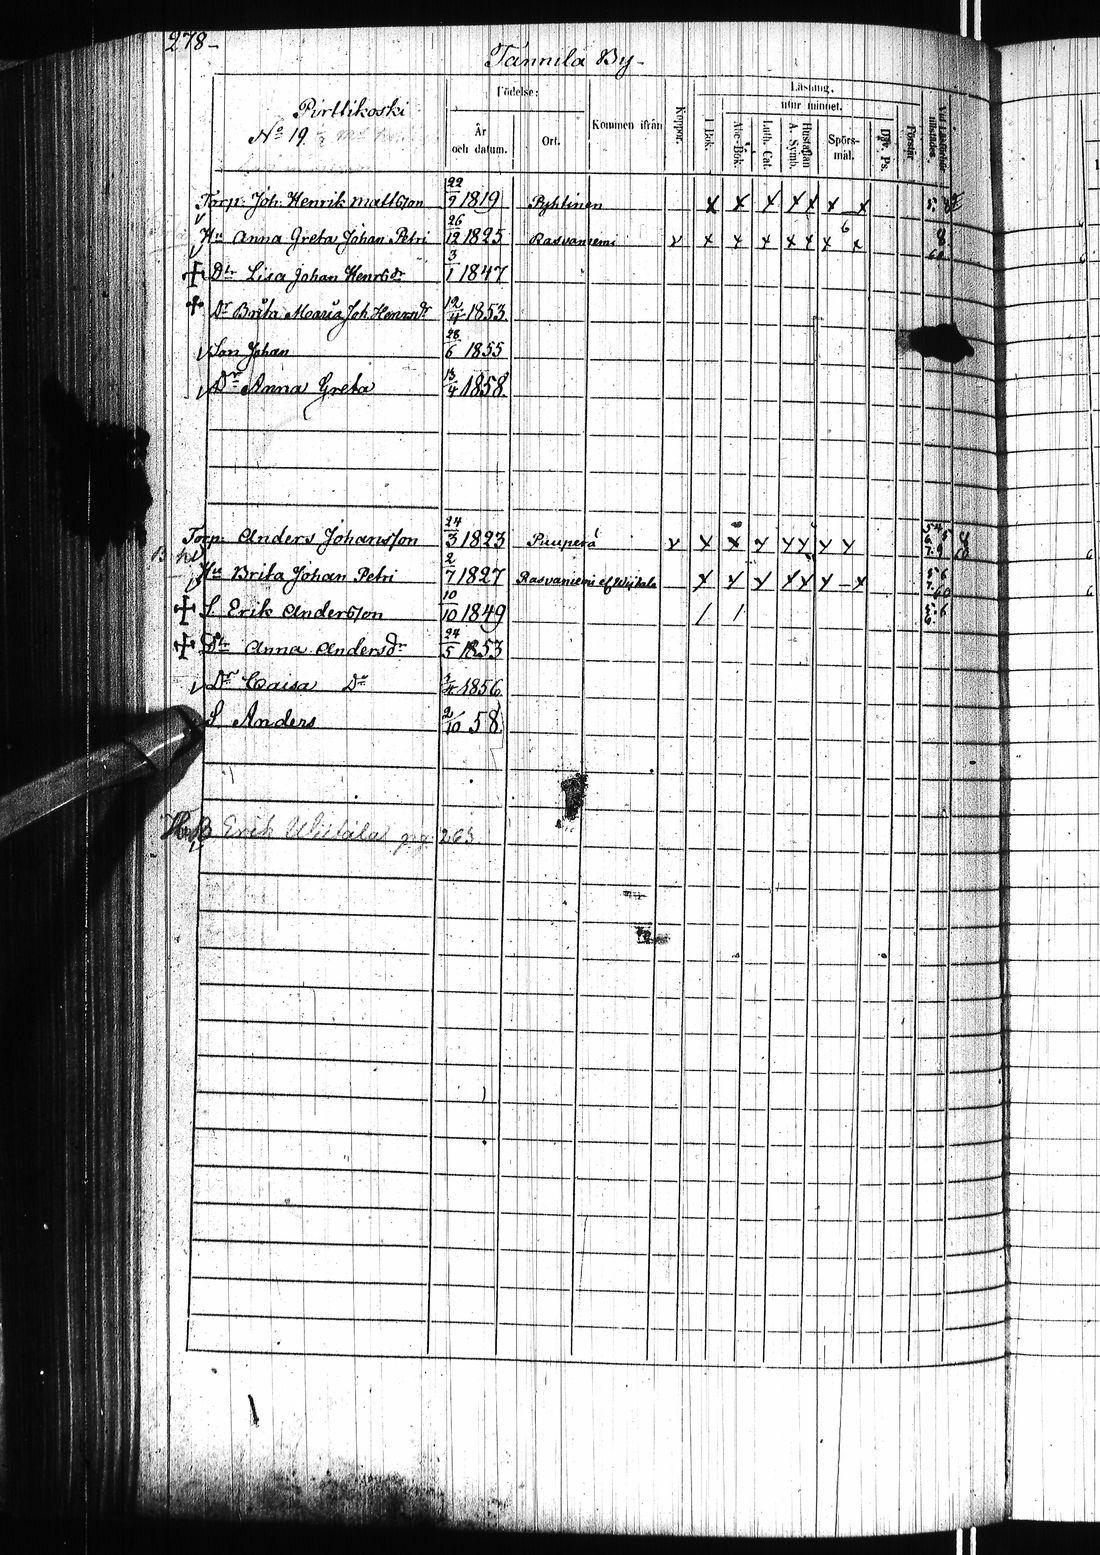 278-
Tannila By-
Pirttikoski
No 19
Födelse:
År och datum.
Ort.
Kommen ifrån
Koppor.
Läsning,
utur minnet.
I Bok.
Abc-Bok.
Luth. Cat.
Hustaflan A. Symb.
Spörs-mål.
Dav. Ps.
Förstår
Torp. Joh. Henrik Mattsson 22/9 1819 Pyhtinen x x x x x x x
Hu Anna Greta Johan Petri 26/12 1825 Rasvaniemi v x x x x x x 6 x 8
Dtr Lisa Johan Henrsdr 3/1 1847
Dr Brita Maria Joh. Henrsdr 12/4 1853.
Son Johan 28/6 1855
Dr Anna Greta 13/4 1858.
Torp. Anders Johansson 24/3 1823 Puuperä v x x x x x x x
Hu Brita Johan Petri 2/7 1827 Rasvaniemi x x x x x x - x
S. Erik Andersson 10/10 1849 / /
Dtr Anna Andersdr 24/5 1853
Dr Caisa Dr 1856.
S Anders 2/10 58.
Erik 263.